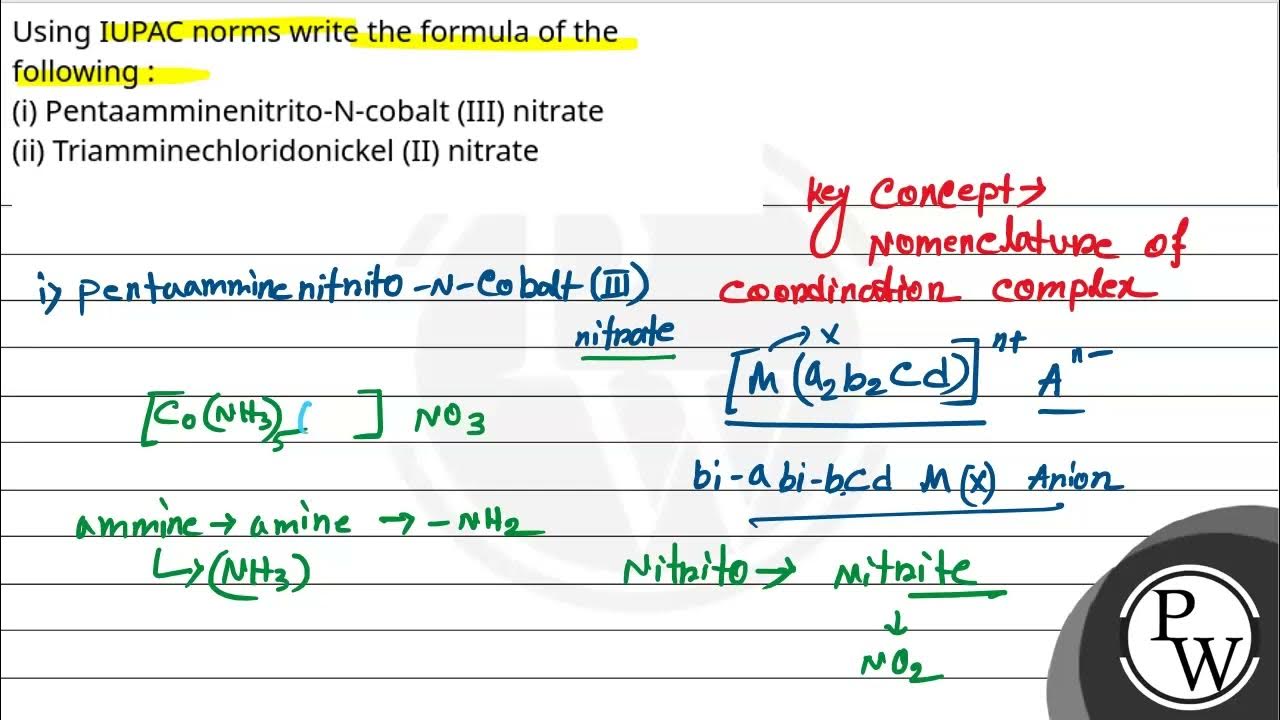 Using IUPAC norms write the formula of the
following :
(i) Pentaamminenitrito-N-cobalt (III) nitrate
(ii) Triamminechloridonickel (II) nitrate
Key Concept →
Nomenclature of
coordination complex
i) pentaammine nitrito -N- Cobalt (III)
nitrate
[M (a2 b2 c d)]n+ An-
→ x
[Co(NH3)5 ( ] NO3
bi-a bi-b,cd M(x) Anion
ammine → amine → -NH2
↳ (NH3)
Nitrito → Nitrite
↓
NO2
P
W